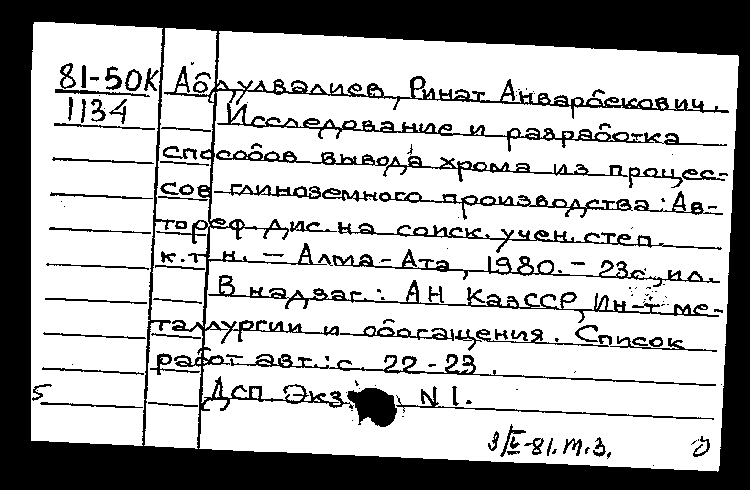 81-50К Абдулвалиев, Ринат Анварбекович.
1134 Исследование и разработка
способов вывода хрома из процес-
сов глиноземного производства: Ав-
тореф. дис. на соиск. учен. степ.
к.т.н. – Алма-Ата, 1980. – 23с., ил.
В надзаг.: АН КазССР, Ин-т ме-
таллургии и обогащения. Список
работ авт.: с. 22-23.
5 Дсп. Экз. N 1.
-81. т.з.